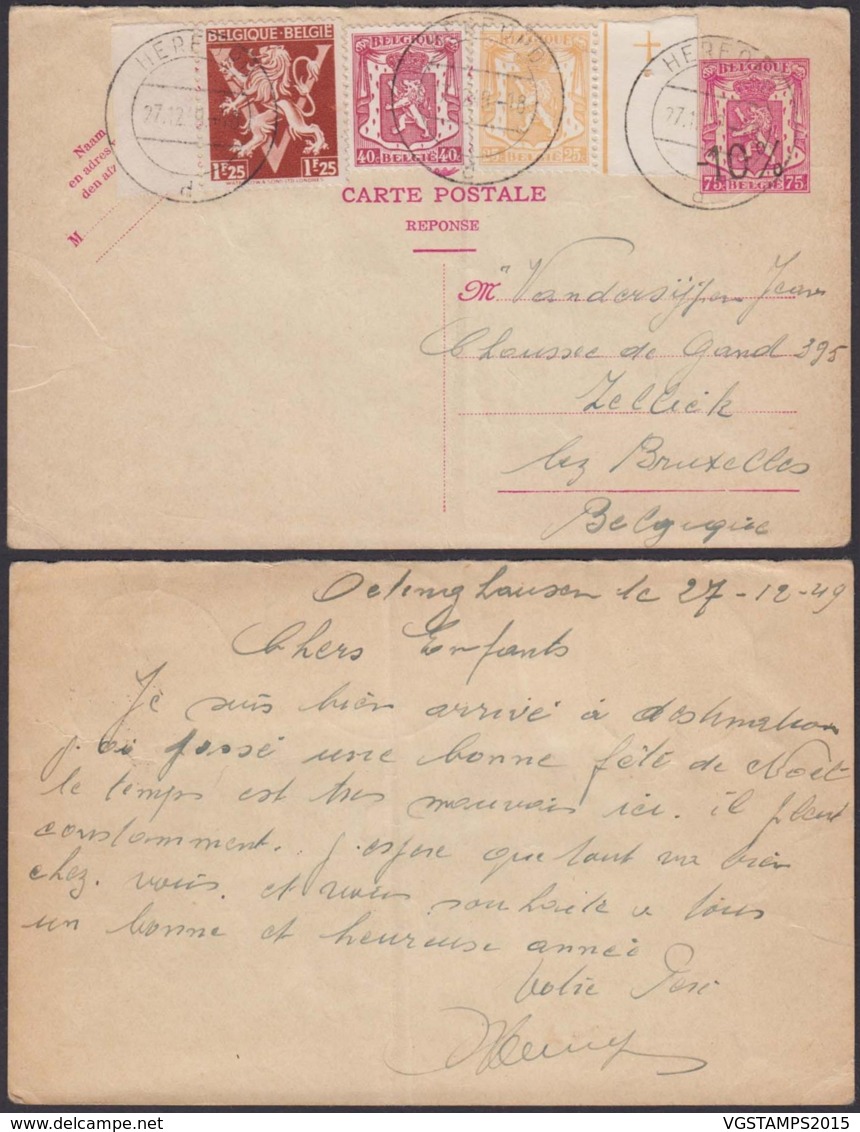 BELGIQUE-BELGIË
1F25 1F25
BELGIQUE
40c BELGIË 40c
BELGIQUE
25c BELGIË 25c
BELGIQUE
75c BELGIË 75c
-10%
27.12
d
d
d
Naam
en adres
den afz
M
CARTE POSTALE
REPONSE
M" Vandersijpen Jean
Chaussee de Gand 395
Zellick
lez Bruxelles
Belgique
Oelinghausen le 27-12-49
Chers Enfants
Je suis bien arrivé à destination
j'ai passé une bonne fête de Noël
le temps est tres mauvais ici. il pleut
constamment. j'espere que tout va bien
chez. vous. et vous souhaite a tous
un bonne et heureuse année
Votre Pere
VGSTAMPS2015